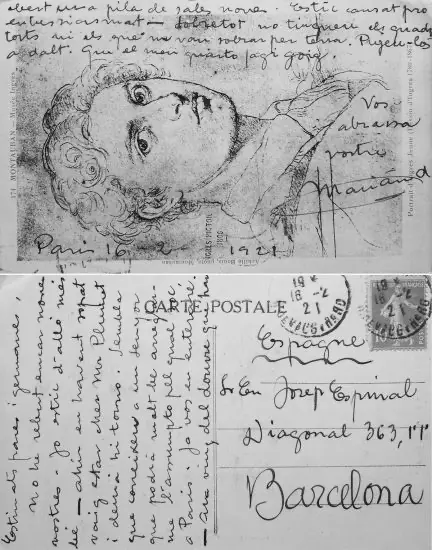 obert una pila de sales noves. Estic cansat pro
entussiasmat — sobretot no tingueu els
torts ni els que us van sobrar per terra. Pugeu-los
adalt. Que el meu quarto fagi goig.
Vos
abrassa
vostre
Marián
Paris 16-2 1921
171 MONTAUBAN - Musée Ingres
Portrait d'Ingres Jeune (Dessin d'Ingres 1780-1867)
Achille Bouis, photo, Montauban
CARTE POSTALE
Estimats pares i germans,
No he rebut encar noves
vostres. Jo estic d'allò més
bé — ahir en havent sopat
vaig estar chez Mr Plumet
i demà hi torno. Sembla
que a un senyor
que podrà molt be arreglar-
me l'assumpto pel qual
a Paris. Jo vos en enteraré.
— Ara vinc del Louvre que han
Espagne
Sr En Josep Espinal
Diagonal 363, 1er
Barcelona
18 -2
21